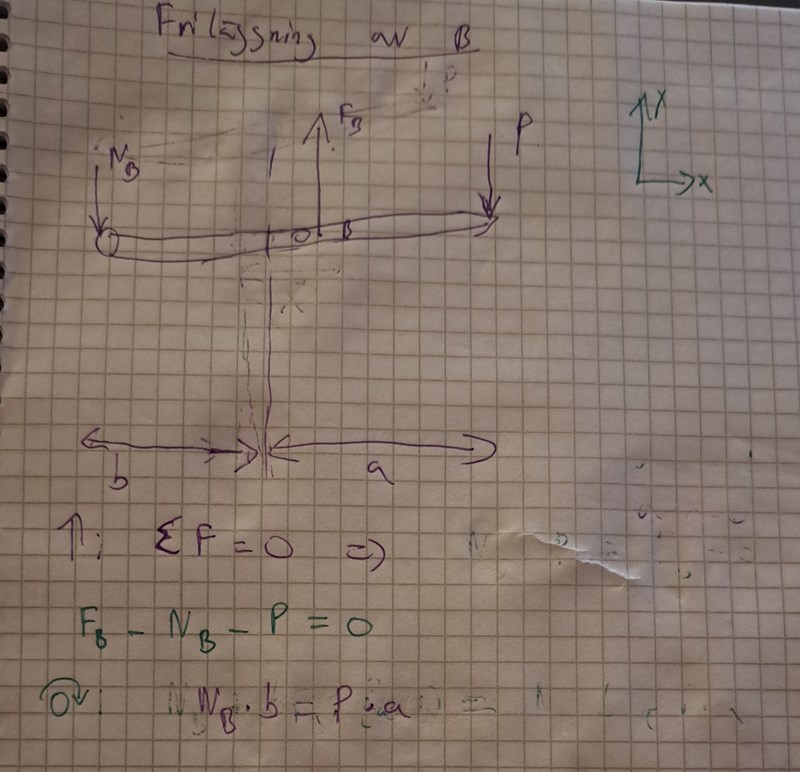 Friläggning av B
P
F_B
N_B
P
Y
x
O B
b
a
↑: ΣF = 0 =>
F_B - N_B - P = 0
O↷: N_B · b = P · a